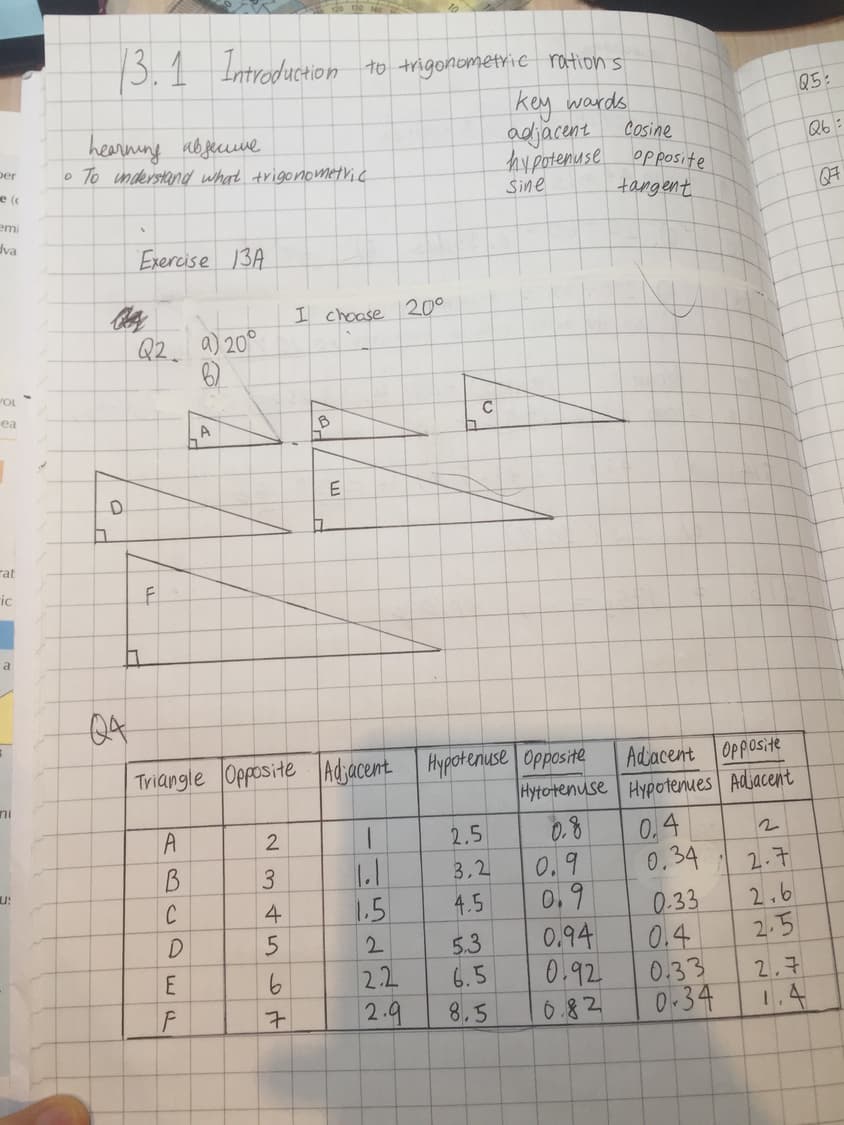 13.1 Introduction to trigonometric rations
key wards
adjacent cosine
hypotenuse opposite
sine tangent
To understand what trigonometric
Exercise 13A
I choose 20°
Q2. a) 20°
b)
A
B
C
D
E
F
Q4
Triangle Opposite Adjacent Hypotenuse Opposite/Hytotenuse Adjacent/Hypotenues Opposite/Adjacent
A 2 1 2.5 0.8 0.4 2
B 3 1.1 3.2 0.9 0.34 2.7
C 4 1.5 4.5 0.9 0.33 2.6
D 5 2 5.3 0.94 0.4 2.5
E 6 2.2 6.5 0.92 0.33 2.7
F 7 2.9 8.5 0.82 0.34 1.4
Q5:
Q6:
Q7